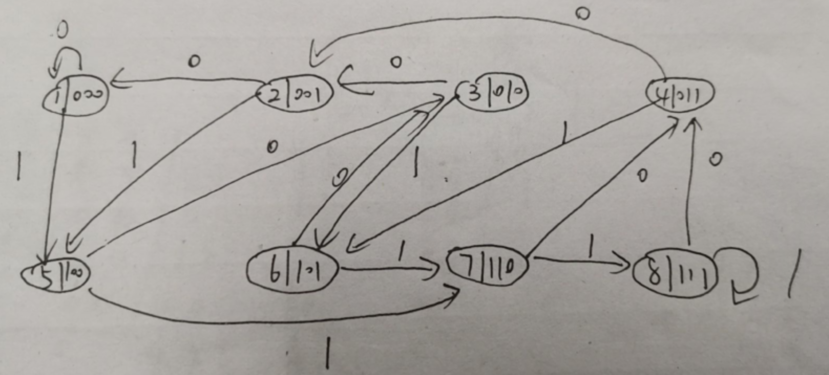 0
0
0
0
1|000
2|001
3|010
4|011
1
1
0
0
1
1
0
0
5|100
6|101
1
7|110
1
8|111
1
1